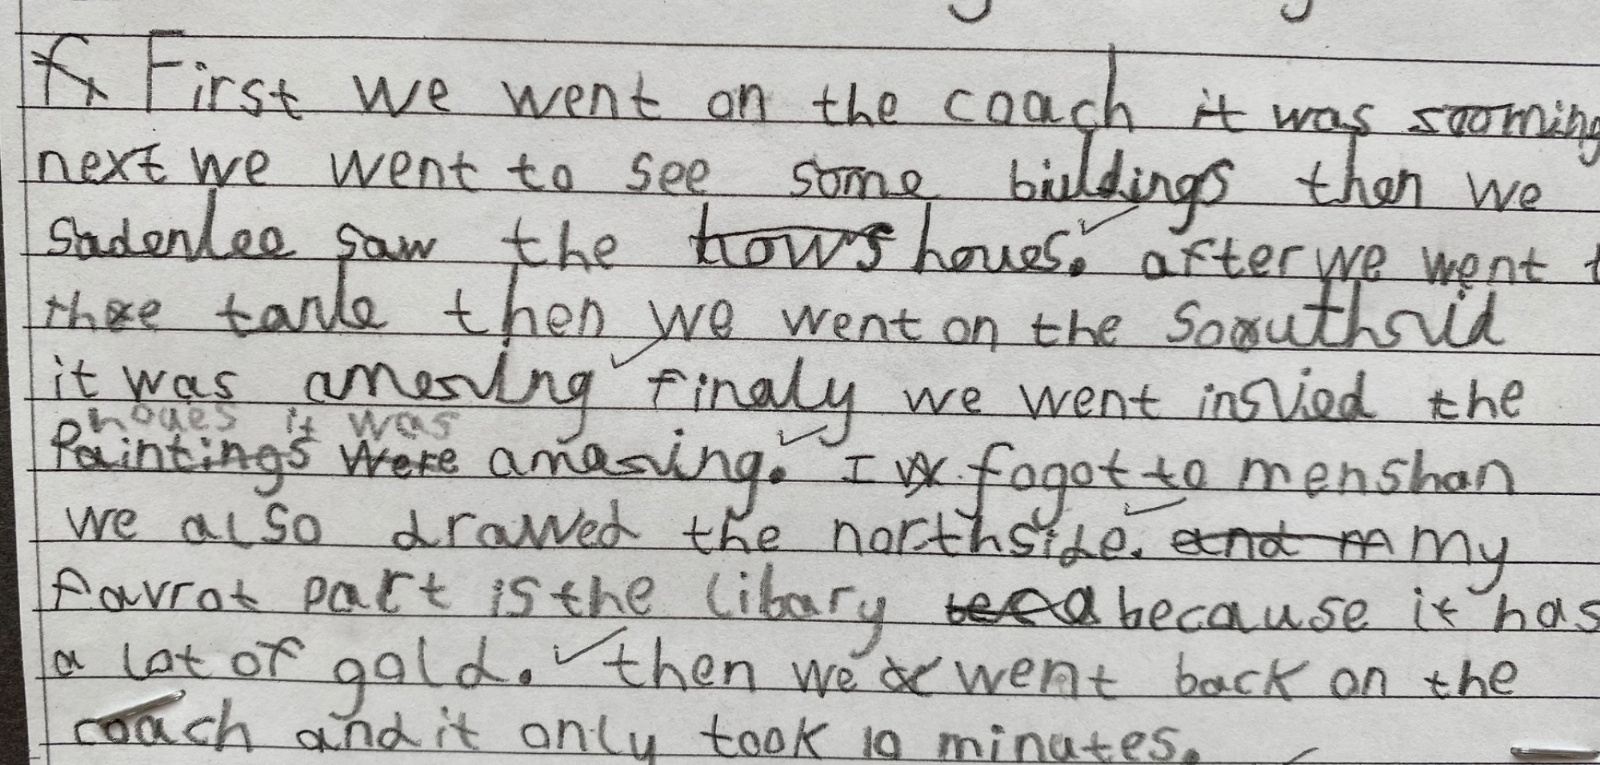 First we went on the coach it was sooming
next we went to see some biuldings then we
Sadenlee saw the hows houes. after we went t
thee tanle then we went on the Soouthsid
it was amesing finaly we went insied the
houes it was
Paintings were amazing. I fogot to menshan
we also drawed the northside. and m my
favrot part is the libary because it has
a lot of gold. then we went back on the
coach and it only took 10 minutes.